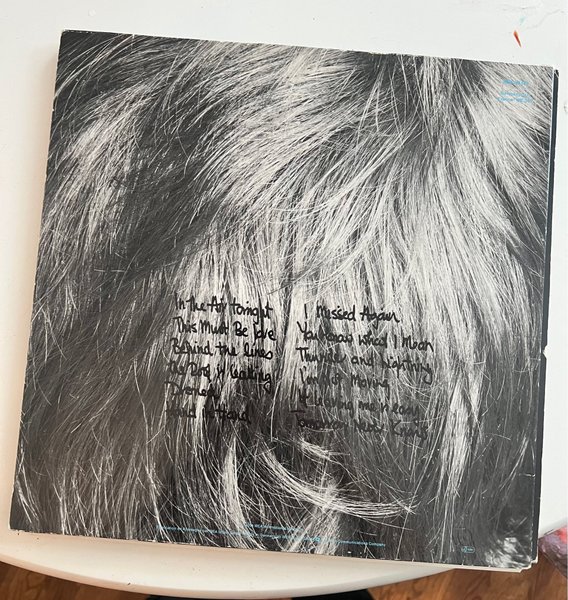 In the Air Tonight
This Must Be love
Behind the lines
The Roof is leaking
Droned
Hand in Hand
I Missed Again
You Know What I Mean
Thunder and Lightning
I'm Not Moving
If leaving me is easy
Tomorrow Never Knows